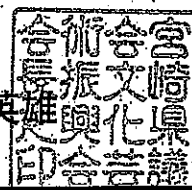 宮崎県議
会文化芸
術振興会
会長之印
英雄